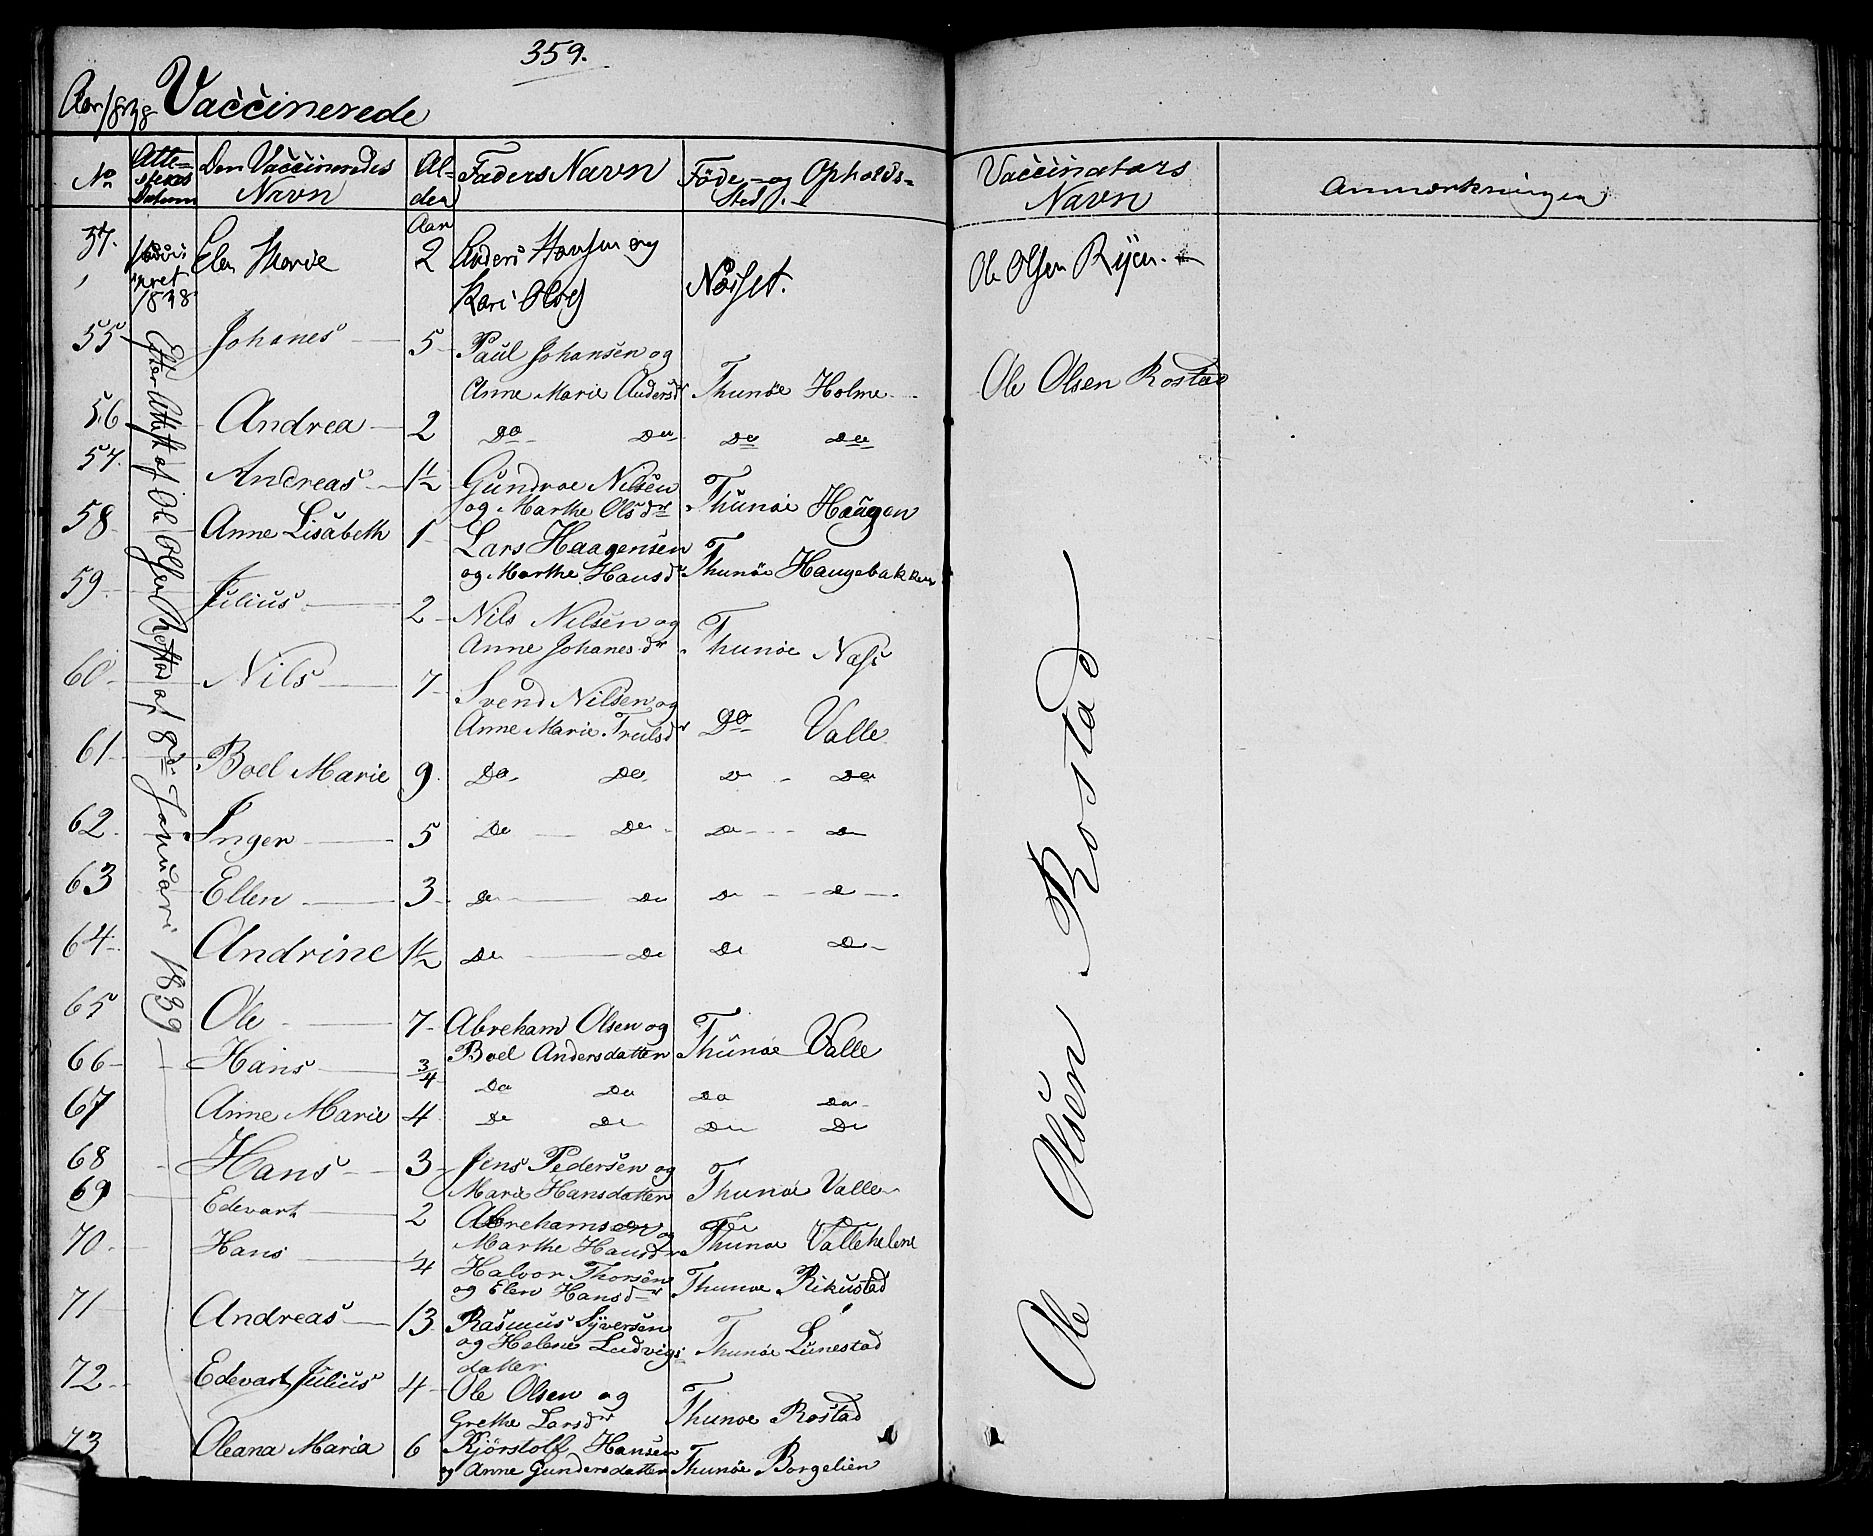 359.
Aar 1838 Vaccinerede
No Attestens Datum Den Vaccineredes Navn Alder Faders Navn Föde- og Opholds-Sted Vaccinators Navn Anmærkninger
Aar
57. 1838 Elen Marie 2 Anders Hansen og Ole Olsen Ryen
Kari Olsd Næsset.
55 Johanes 5 Paul Johansen og
Anne Marie Andersdr Thunöe Holme Ole Olsen Rostad
56 Andrea 2 Do Do Do Do
57. Andreas 1½ Gundroe Nilsen
og Marthe Olsdr Thunöe Haugen
58 Anne Lisabeth 1 Lars Haagensen
og Marthe Hansdr Thunöe Haugebakken
59 Julius 2 Nils Nilsen og
Anne Johanesdr Thunöe Næs
60 Nils 7 Svend Nilsen og
Anne Marie Trulsdr Do Valle
61 Boel Marie 9 Do Do Do Do
62 Inger 5 Do Do Do Do
63 Ellen 3 Do Do Do Do
64 Andrine 1½ Do Do Do Do
65 Ole 7 Abreham Olsen og
Boel Andersdatter Thunöe Valle
66 Hans ¾ Do Do Do Do
67 Anne Marie 4 Do Do Do Do
68 Hans 3 Jens Pedersen og
Marie Hansdatter Thunöe Valle
69 Edevart 2 Do Do
70 Hans 4 Marthe Hansdr Thunöe
Halvor Thorsen
og Elen Hansdr Thunoe Rikustad
71 Andreas 13 Rasmus Syversen
og Helene Ludvigs- Thunöe Lunestad
datter
72 Edevart Julius 4 Ole Olsen og
Grethe Larsdr Thunoe Rostad
73 Oleana Maria 6 Kjörstolf Hansen
og Anne Gundersdatter Thunöe Borgelien
Efter Attest af Ole Olsen Rostad af 8de Januari 1839
Ole Olsen Rostad